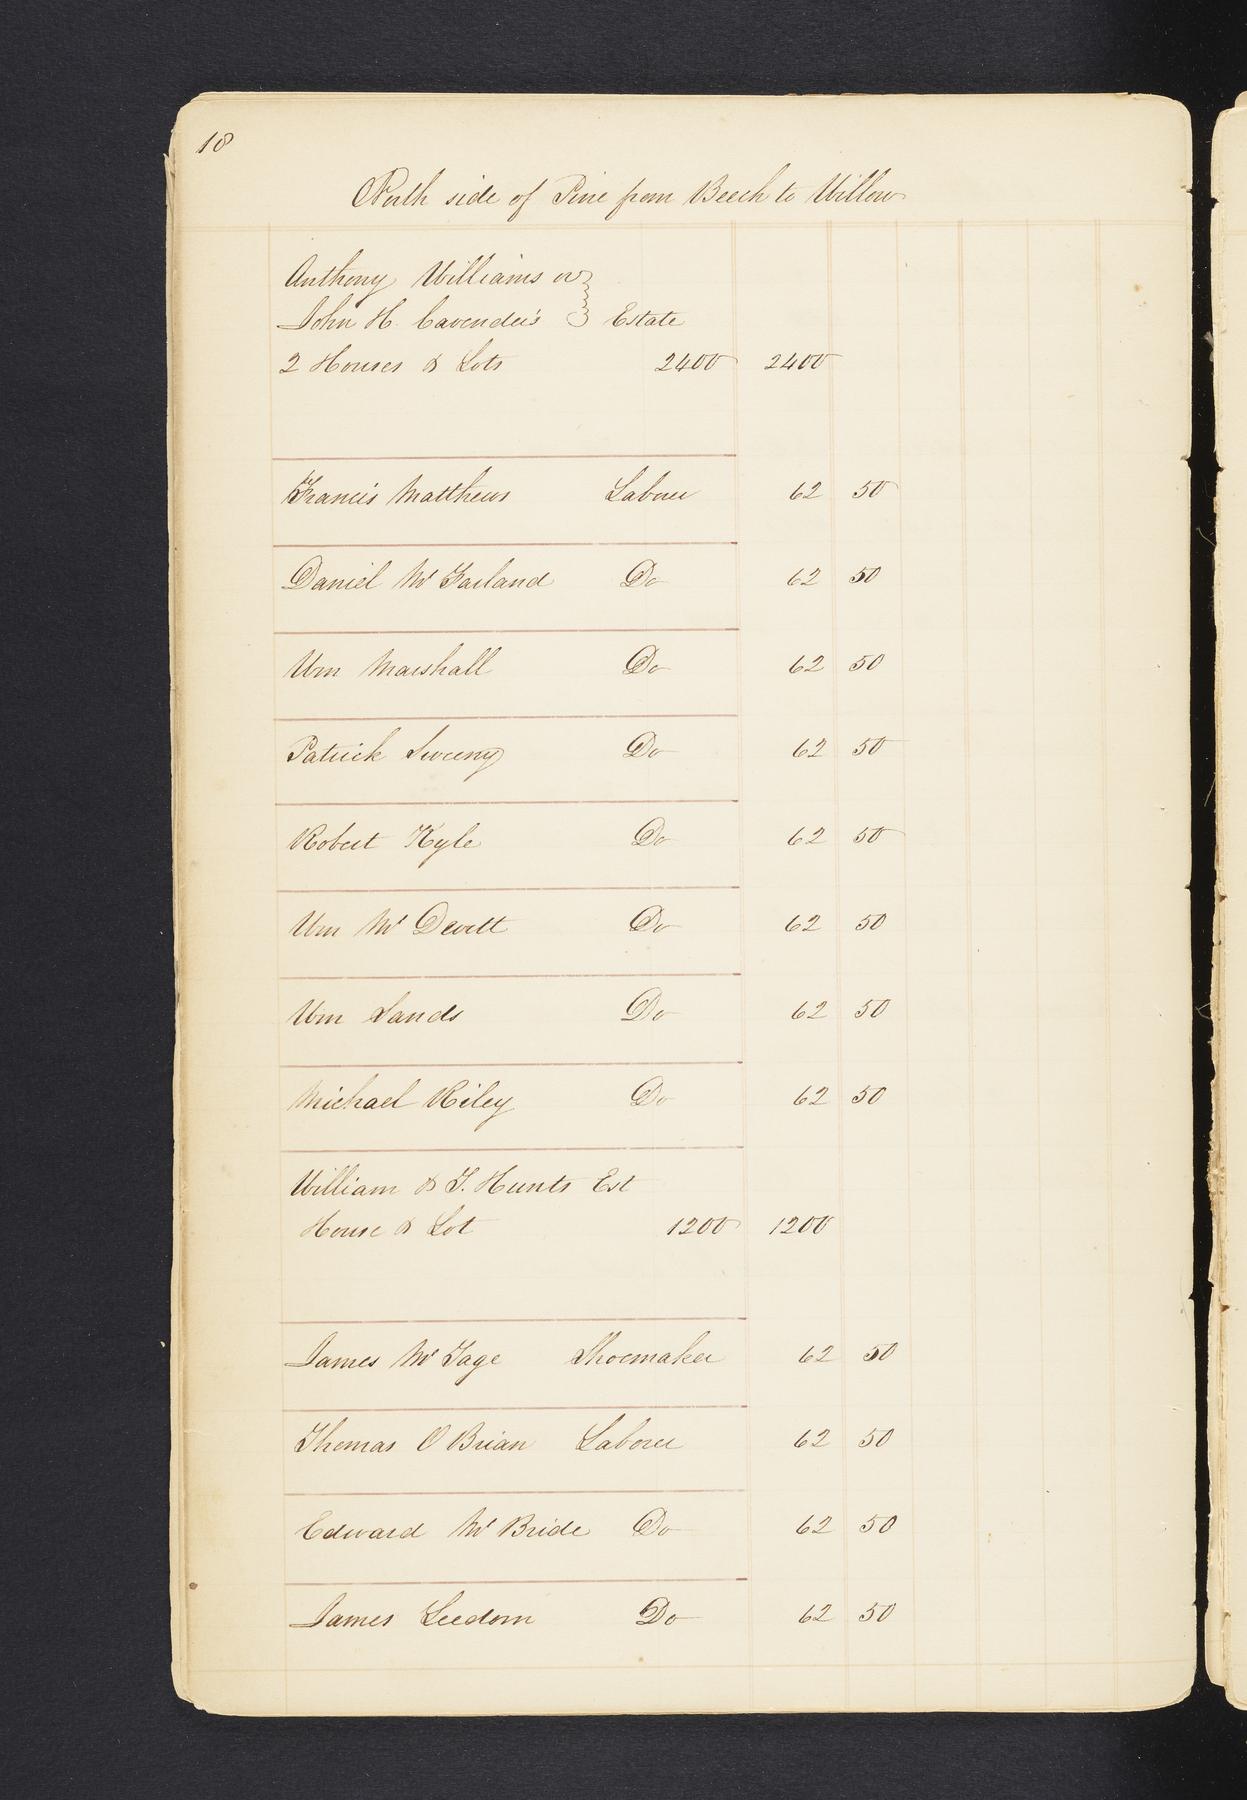 18
North side of Pine from Beech to Willow
Anthony Williams or
John H. Cavender's Estate
2 Houses & Lots 2400 2400
Francis Matthews Laborer 62 50
Daniel Mc Farland Do 62 50
Wm Marshall Do 62 50
Patrick Sweeny Do 62 50
Robert Kyle Do 62 50
Wm Mc Devitt Do 62 50
Wm Sands Do 62 50
Michael Riley Do 62 50
William & T. Hunts Est
House & Lot 1200 1200
James Mc Tage Shoemaker 62 50
Thomas O Brian Laborer 62 50
Edward Mc Bride Do 62 50
James Leedom Do 62 50